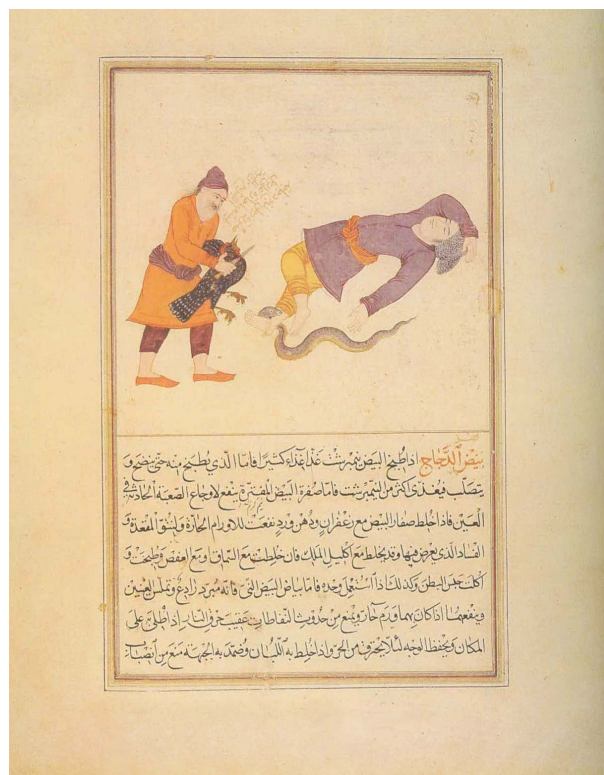 بيض الدجاج اذا طبخ البيض نيمبرشت غذا غذاء كثيرًا فاما الذي يطبخ منه حتى ينضج و
يتصلب فيغذى اكثر من النيمبرشت فاما صفرة البيض المفترة ينفع لاوجاع الصعبة الحادثة في
العين فاذا خلط صفار البيض مع زعفران ودهن ورد نفعت للاورام الحارة ولنتو المقعدة و
الفساد الذي يعرض فيها وقد يخلط مع اكليل الملك فان خلطت مع السماق ومع العفص وطبخت و
اكلت حبس البطن وكذلك اذا استعمل وحده فاما بياض البيض الني فانه مبرد رادع وتملس العين
وينفعهما اذا كان بهما ورم حار ويمنع من حدوث النفاطات عقيب حرق النار اذا طلى على
المكان ويحفظ الوجه لئلا يحترق من الحر واذا خلط به اللبان وضمد به الجبهة منع من انصباب